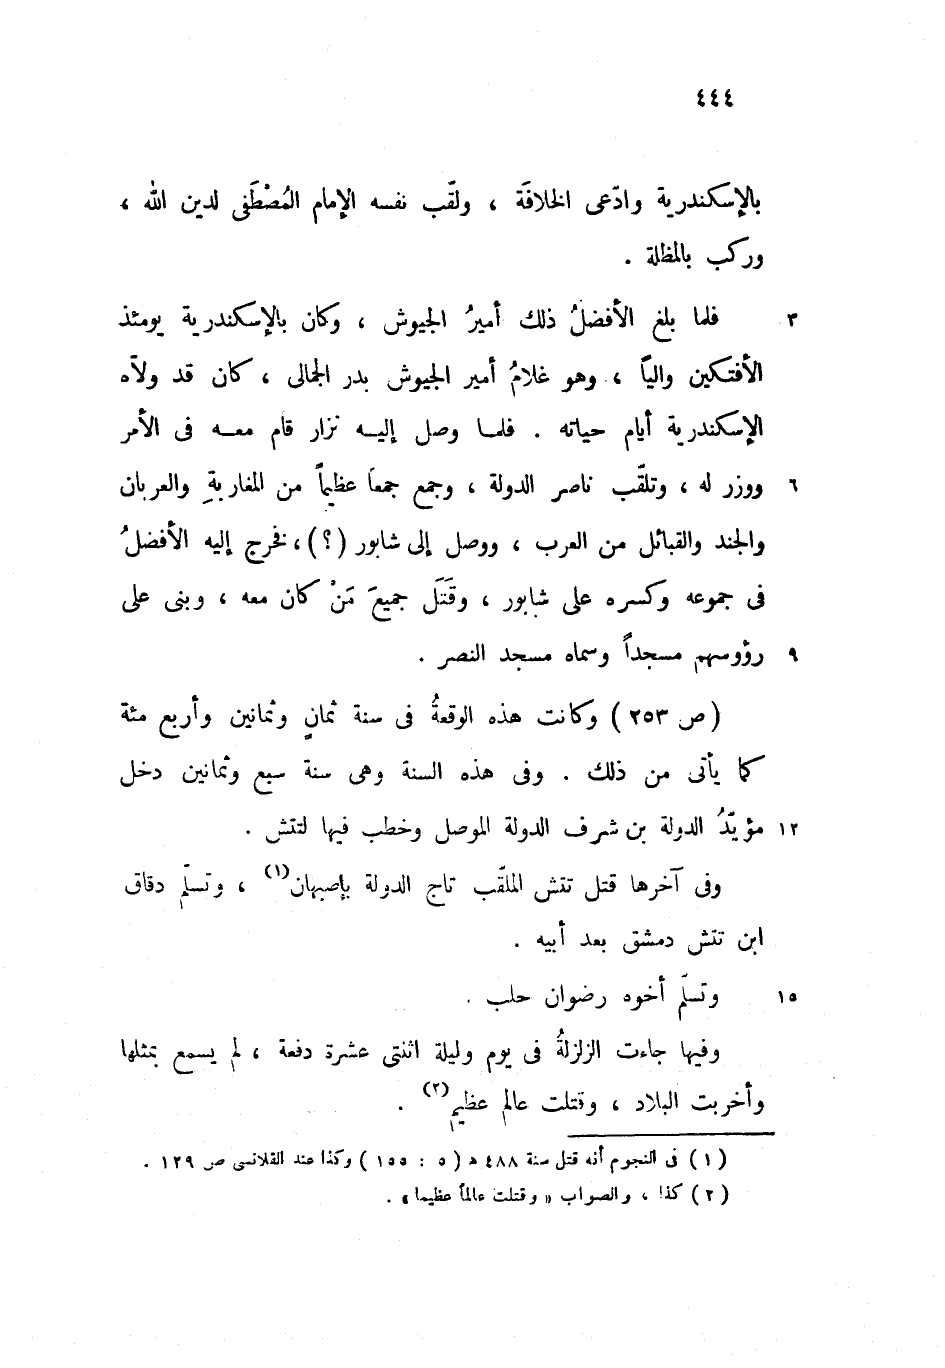 ٤٤٤
بالإسكندرية وادّعى الخلافَة ، ولقّب نفسه الإمام المُصْطَفى لدين الله ،
وركب بالمظلة .
٣ فلما بلغ الأفضلُ ذلك أميرُ الجيوش ، وكان بالإسكندرية يومئذ
الأفتكين والياً ، وهو غلامُ أمير الجيوش بدر الجمالى ، كان قد ولاّه
الإسكندرية أيام حياته . فلما وصل إليه نزار قام معه فى الأمر
٦ ووزر له ، وتلقّب ناصر الدولة ، وجمع جمعاً عظيماً من المغاربةِ والعربان
والجند والقبائل من العرب ، ووصل إلى شابور (؟)، فخرج إليه الأفضلُ
فى جموعه وكسره على شابور ، وقَتَل جميعَ مَنْ كان معه ، وبنى على
٩ رؤوسهم مسجداً وسماه مسجد النصر .
(ص ٢٥٣) وكانت هذه الوقعةُ فى سنة ثمانٍ وثمانين وأربع مئة
كما يأتى من ذلك . وفى هذه السنة وهى سنة سبع وثمانين دخل
١٢ مؤيّدُ الدولة بن شرف الدولة الموصل وخطب فيها لتتش .
وفى آخرها قتل تتش الملقّب تاج الدولة بإصبهان(١) ، وتسلّم دقاق
ابن تتش دمشق بعد أبيه .
١٥ وتسلّم أخوه رضوان حلب .
وفيها جاءت الزلزلةُ فى يوم وليلة اثنتى عشرة دفعة ، لم يسمع بمثلها
وأخربت البلاد ، وقتلت عالم عظيم(٢) .
(١) فى النجوم أنه قتل سنة ٤٨٨ هـ (٥ : ١٥٥) وكذا عند القلانسى ص ١٢٩ .
(٢) كذا ، والصواب « وقتلت عالماً عظيما» .